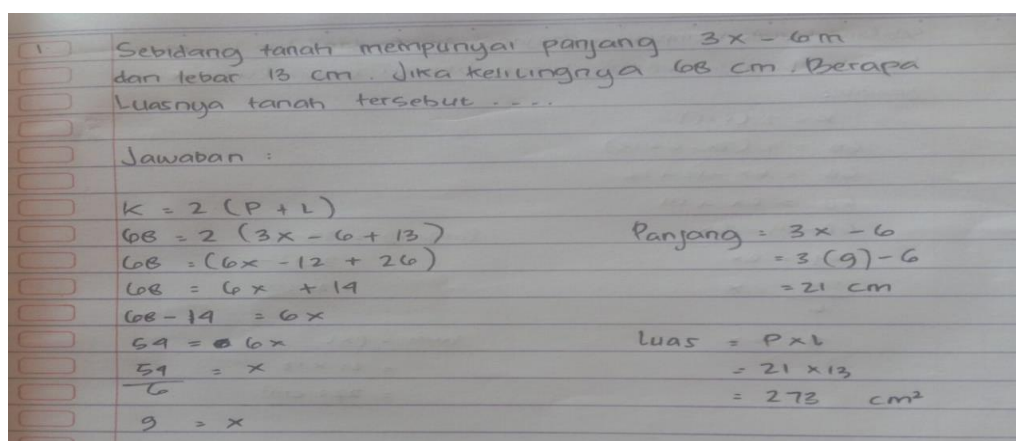 1 Sebidang tanah mempunyai panjang 3x - 6 m
dan lebar 13 cm. Jika kelilingnya 68 cm. Berapa
Luasnya tanah tersebut ....
Jawaban :
K = 2 (P + L)
68 = 2 (3x - 6 + 13)
68 = (6x - 12 + 26)
68 = 6x + 14
68 - 14 = 6x
54 = 6x
54/6 = x
9 = x
Panjang = 3x - 6
= 3 (9) - 6
= 21 cm
Luas = P x L
= 21 x 13
= 273 cm²